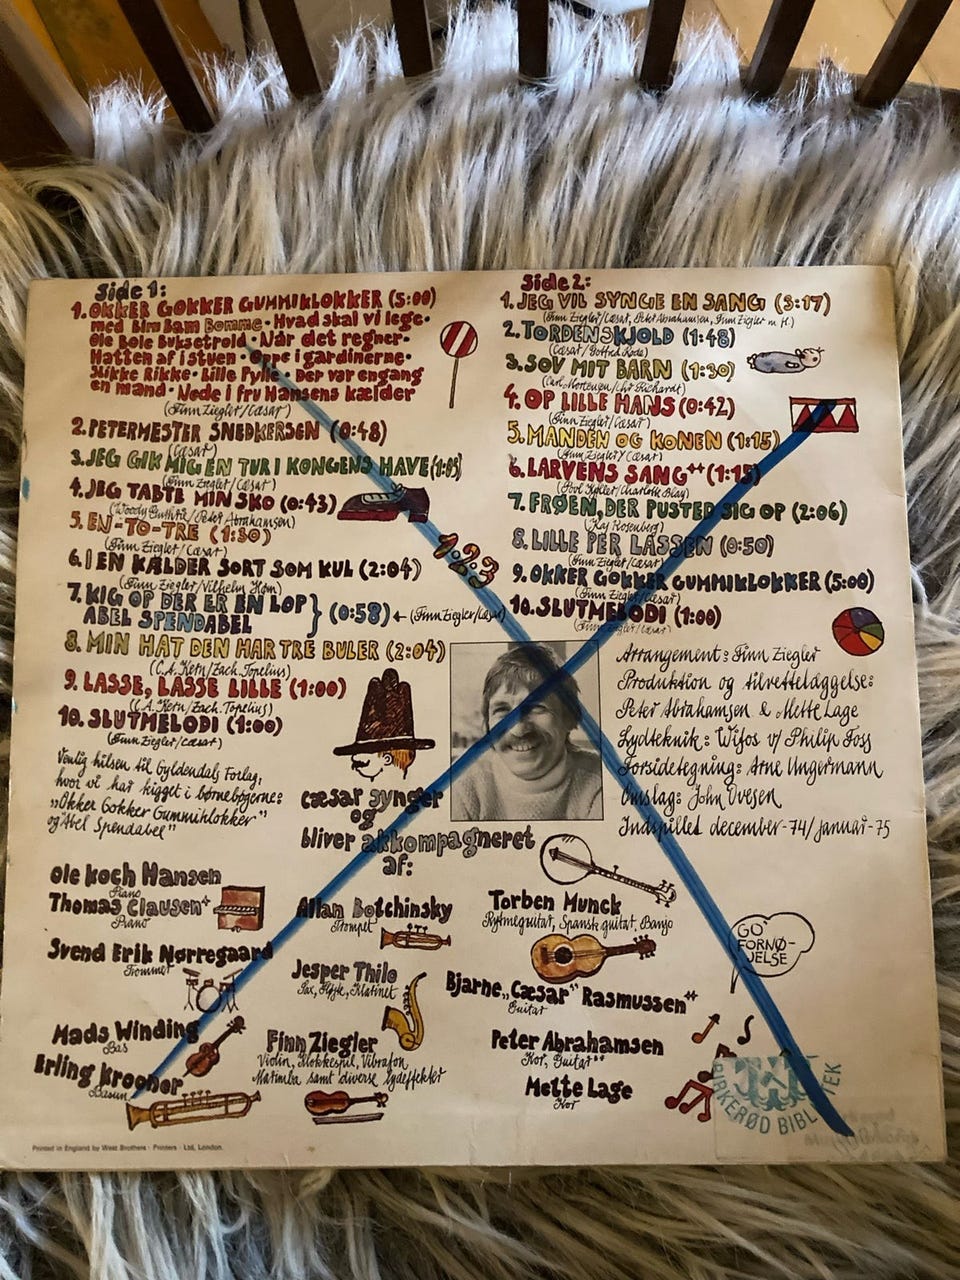 Side 1:
1. OKKER GOKKER GUMMIKLOKKER (5:00)
med Bim Bam Bomme · Hvad skal vi lege ·
Ole Bole Buksetrold · Når det regner ·
Hatten af i stuen · Oppe i gardinerne ·
Nikke Rikke · Lille Pylle · Der var engang
en mand · Nede i fru Hansens kælder
(Finn Ziegler/Cæsar)
2. PETERMESTER SNEDKERSEN (0:48)
(Cæsar)
3. JEG GIK MIG EN TUR I KONGENS HAVE
(Finn Ziegler/Cæsar)
4. JEG TABTE MIN SKO (0:43)
(Woody Guthrie/Peter Abrahamsen)
5. EN-TO-TRE (1:30)
(Finn Ziegler/Cæsar)
1.2.3
6. I EN KÆLDER SORT SOM KUL (2:04)
(Finn Ziegler/Vilhelm
7. KIG OP DER ER EN LOP
ABEL SPENDABEL } (0:58) ← (Finn Ziegler/Cæsar)
8. MIN HAT DEN HAR TRE BULER (2:04)
(C.A. Kern/Zach. Topelius)
9. LASSE, LASSE LILLE (1:00)
(C.A. Kern/Zach. Topelius)
10. SLUTMELODI (1:00)
(Finn Ziegler/Cæsar)
Venlig hilsen til Gyldendals Forlag,
hvor vi har kigget i børnebøgerne:
"Okker Gokker Gummiklokker"
og "Abel Spendabel"
Side 2:
1. JEG VIL SYNGE EN SANG (3:17)
(Finn Ziegler/Cæsar, Peter Abrahamsen, Finn Ziegler m. fl.)
2. TORDENSKJOLD (1:48)
(Cæsar/Gotfred Rode)
3. SOV MIT BARN (1:30)
(Carl Mortensen/Chr Richardt)
4. OP LILLE HANS (0:42)
(Finn Ziegler/Cæsar)
5. MANDEN OG KONEN (1:15)
(Finn Ziegler/Cæsar)
6. LARVENS SANG++ (1:15)
(Poul Kjøller/Charlotte Blay)
7. FRØEN, DER PUSTED SIG OP (2:06)
(Kaj Rosenberg)
8. LILLE PER LASSEN (0:50)
(Finn Ziegler/Cæsar)
9. OKKER GOKKER GUMMIKLOKKER (5:00)
(Finn Ziegler/Cæsar)
10. SLUTMELODI (1:00)
(Finn Ziegler/Cæsar)
Arrangement: Finn Ziegler
Produktion og tilrettelæggelse:
Peter Abrahamsen & Mette Lage
Lydteknik: Wifos v/ Philip Foss
Forsidetegning: Arne Ungermann
Omslag: John Ovesen
Indspillet december-74/januar-75
cæsar synger
og
bliver akkompagneret
af:
Ole Koch Hansen
Piano
Thomas Clausen+
Piano
Svend Erik Nørregaard
Trommer
Mads Winding
Bas
Erling Kroner
Basun
Allan Botchinsky
Trompet
Jesper Thilo
Sax, Fløjte, Klarinet
Finn Ziegler
Violin, Klokkespil, Vibrafon,
Marimba samt diverse lydeffekter
Torben Munck
Rytmeguitar, Spansk guitar, Banjo
Bjarne "Cæsar" Rasmussen++
Guitar
Peter Abrahamsen
Kor, Guitar++
Mette Lage
Kor
GO'
FORNØ-
JELSE
BIRKERØD BIBLIOTEK
Printed in England by West Brothers · Printers · Ltd, London.